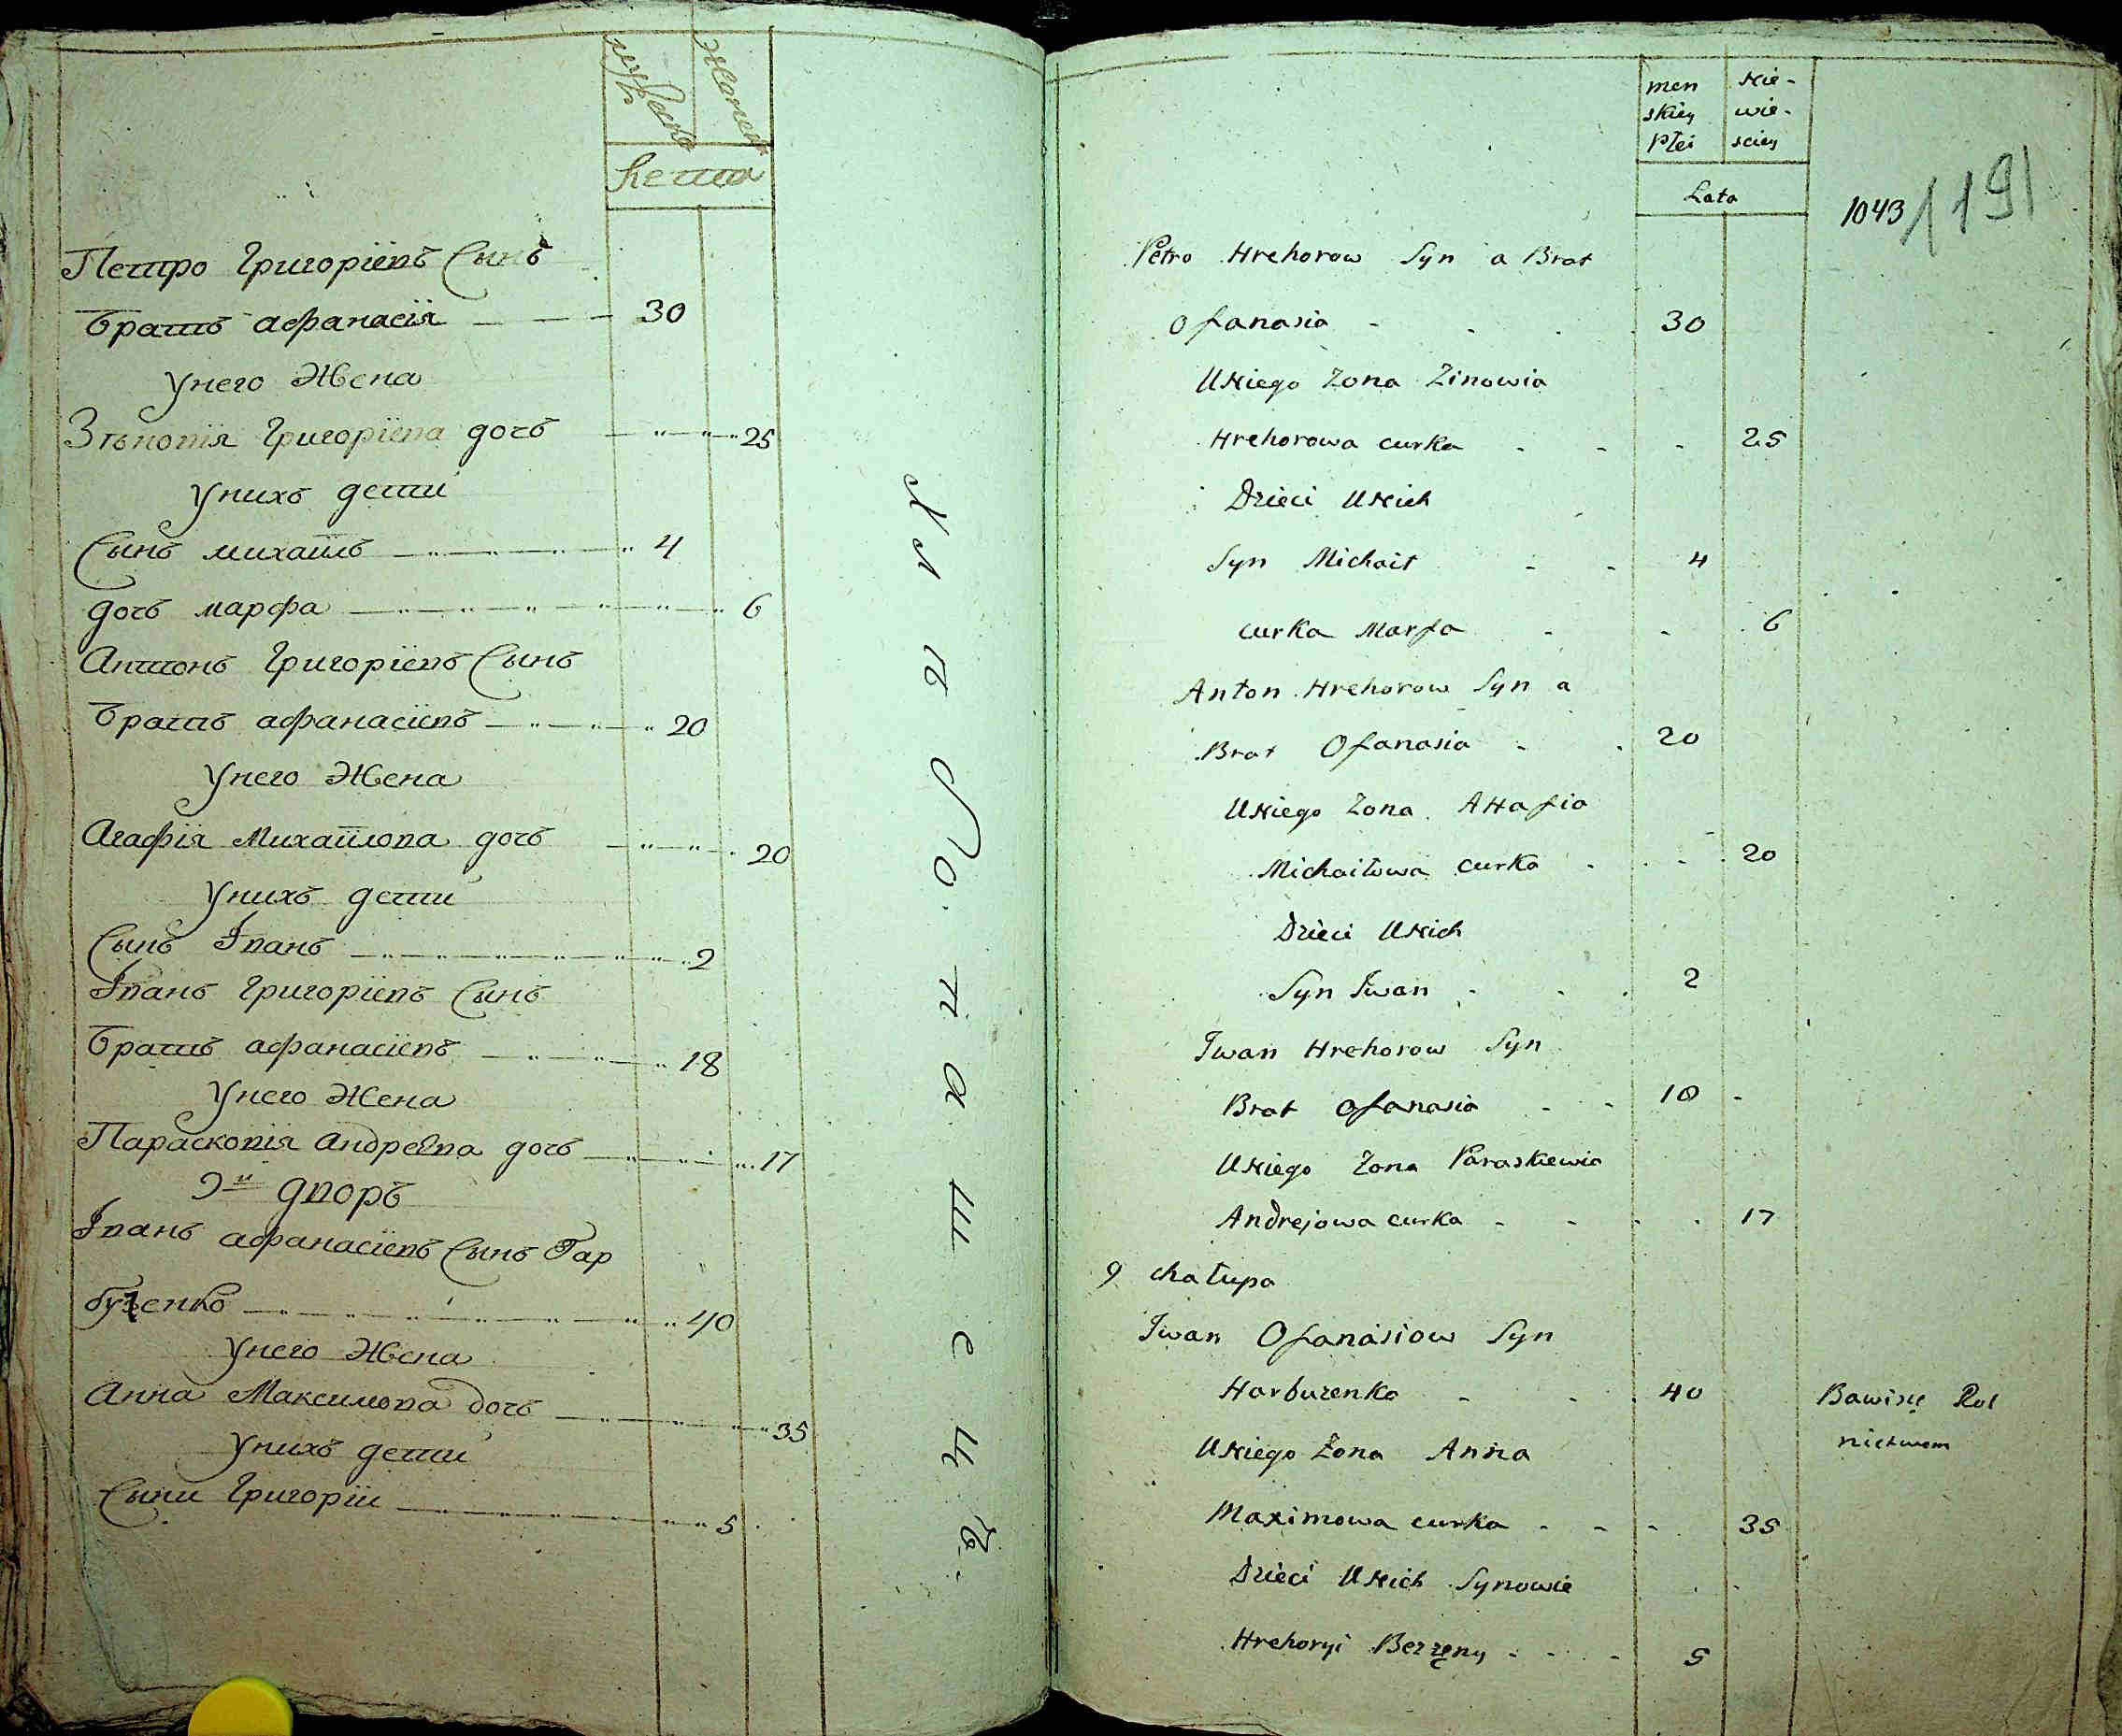 мужеска
женска
лета
Петро Григоріевъ Сынъ
братъ афанасія 30
Унего Жена
Зѣновія Григоріева дочь 25
Унихъ дети
Сынъ михаилъ 4
дочь марфа 6
Антонъ Григоріевъ Сынъ
братъ афанасіевъ 20
Унего Жена
Агафія Михаилова дочь 20
Унихъ дети
Сынъ Іванъ 2
Іванъ Григоріевъ Сынъ
братъ афанасіевъ 18
Унего Жена
Парасковія Андреева дочь 17
9й дворъ
Іванъ афанасіевъ Сынъ Гар
бузенко 40
Унего Жена
Анна Максимова дочь 35
Унихъ дети
Сыни Григоріи 5
men Nie-
skiey wie-
Płci sciey
Lata
1043 191
Petro Hrehorow Syn a Brat
Ofanasia 30
Uniego Zona Zinowia
Hrehorowa curka 25
Dzieci Unich
Syn Michait 4
curka Marfa 6
Anton Hrehorow Syn a
Brat Ofanasia 20
Uniego Zona AHafia
Michaitowa curka 20
Dzieci Unich
Syn Iwan 2
Iwan Hrehorow Syn
Brat Ofanasia 18
Uniego Zona Paraskiewia
Andrejowa curka 17
9 chałupa
Iwan Ofanasiow Syn
Harbuzenko 40 Bawisię Rol
nictwem
Uniego Żona Anna
Maximowa curka 35
Dzieci Unich Synowie
Hrehoryi Bezzęny 5